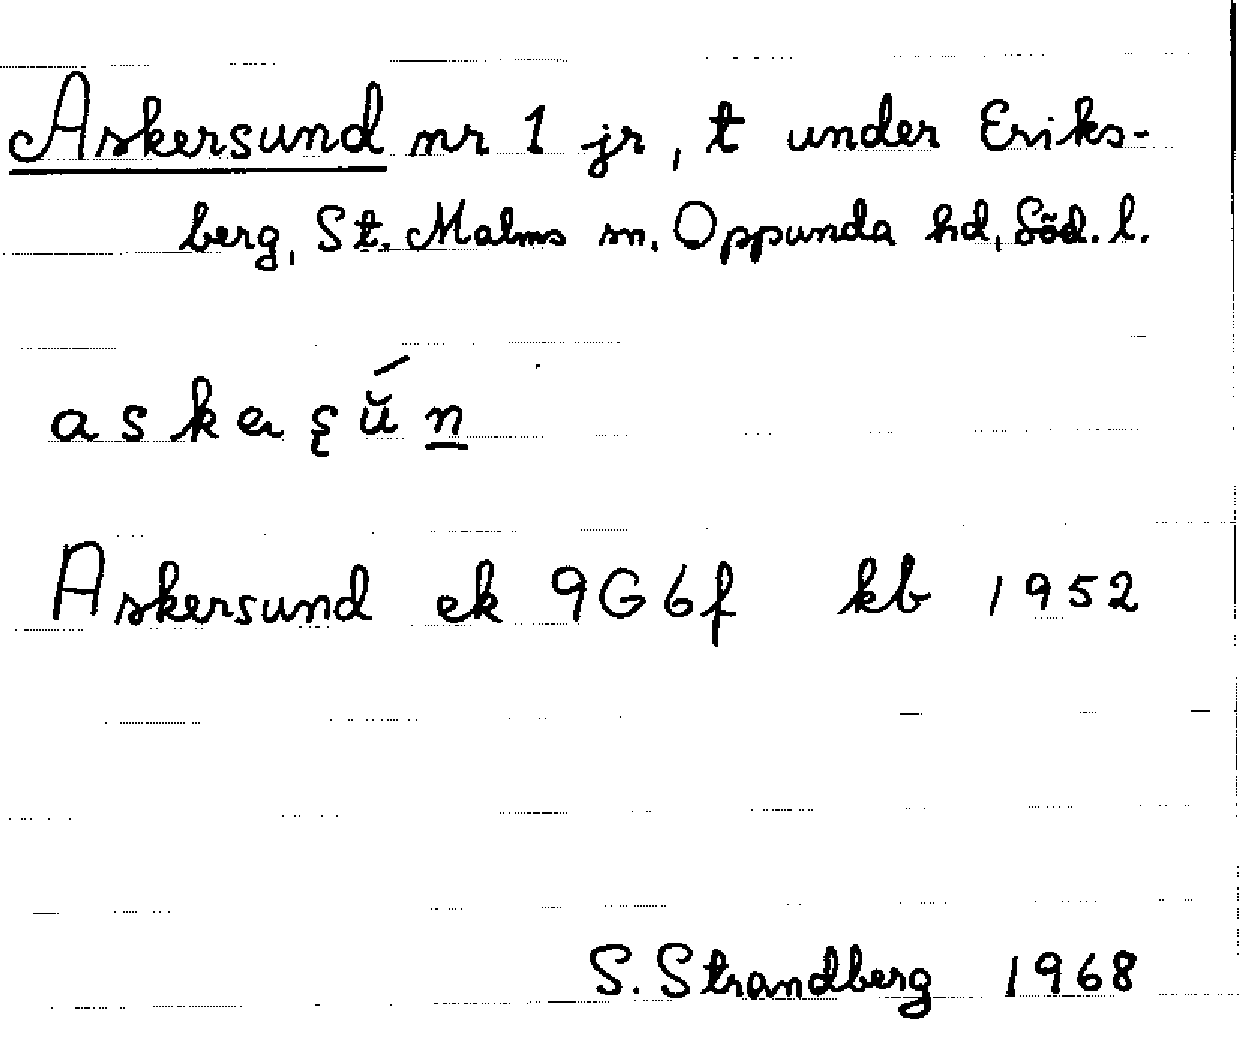 Askersund nr 1 jr, t under Eriks-
berg, St. Malms sn, Oppunda hd, Söd. l.
Askersund ek 9G6f kb 1952
S. Strandberg 1968